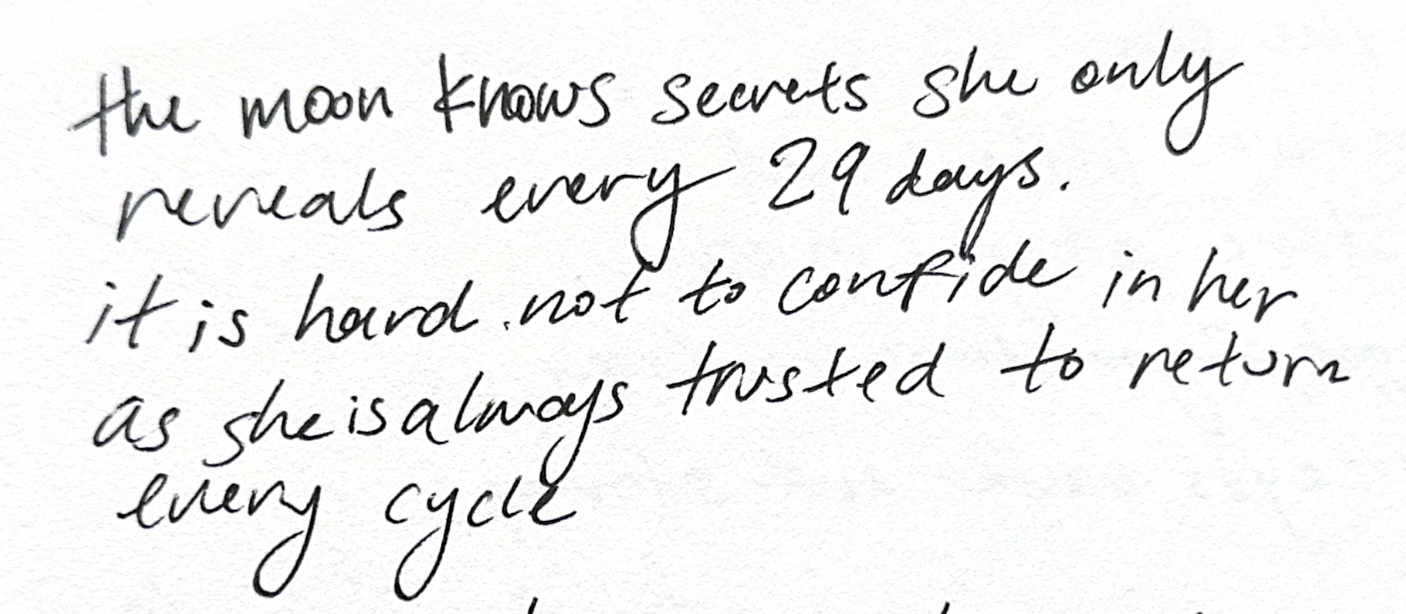 the moon knows secrets she only
reveals every 29 days.
it is hard not to confide in her
as she is always trusted to return
every cycle